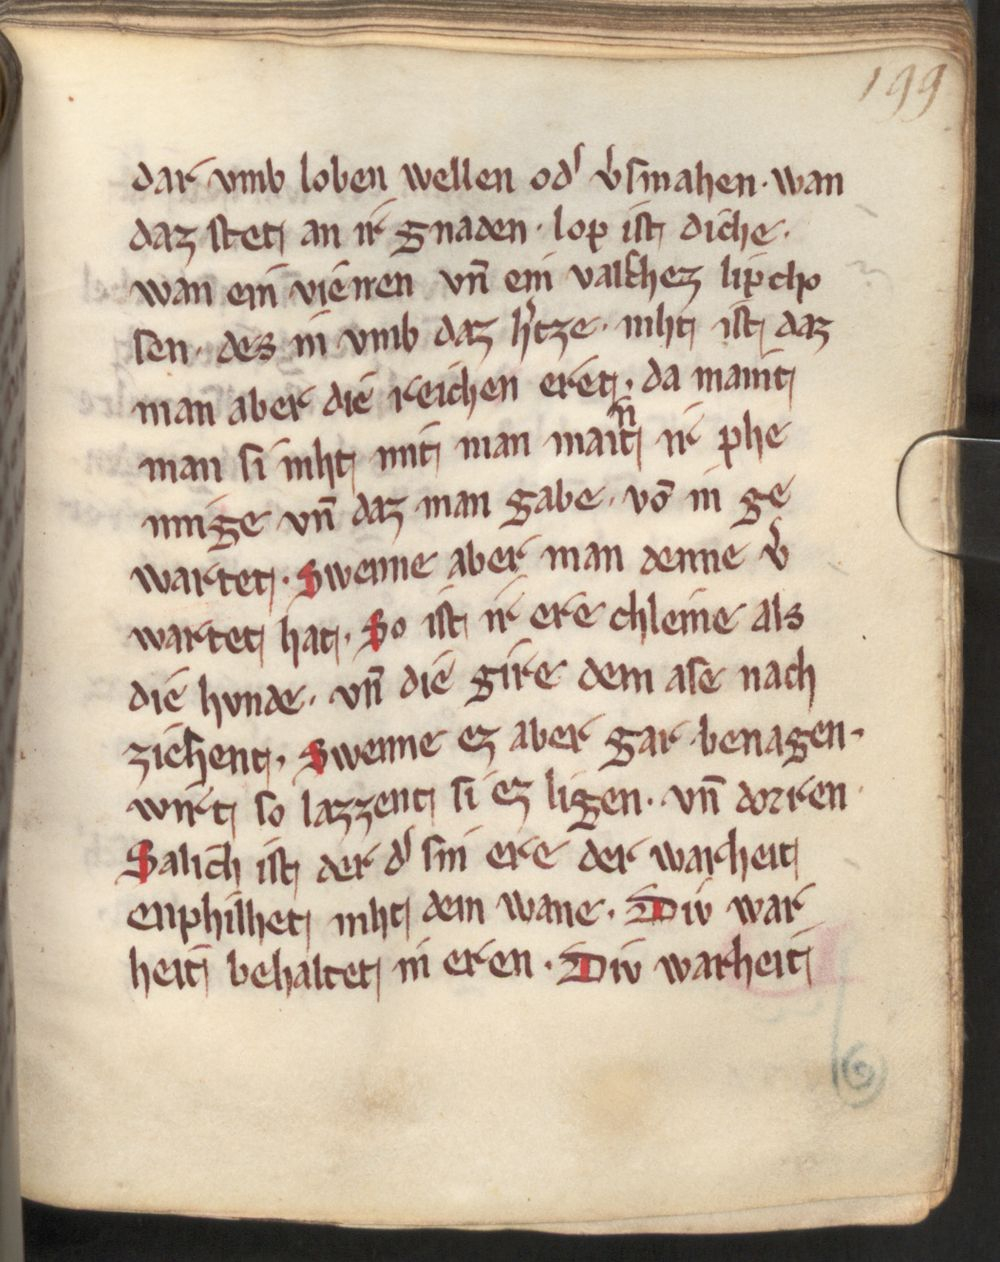 199
dar vmb loben wellen od' v'smahen · wan
daz stet an ir gnaden · lop ist diche ·
wan ein vieirren vn̄ ein valschez lipcho
sen · des in vmb daz h'tze · niht ist daz
man aber die reichen eret · da maint
man si niht mit man maint ir phe
ninge vn̄ daz man gabe · vō in ge
wartet · Swenne aber man denne v'
wartet hat · So ist ir ere chleine als
die hvnde · vn̄ die gire dem ase nach
ziehent · Swenne ez aber gar benagen ·
wirt so lazzent si ez ligen · vn̄ dorren ·
Salich ist der d' sin ere der warheit
enphilhet niht dem wane · Div war
heit behaltet in eren · Div warheit